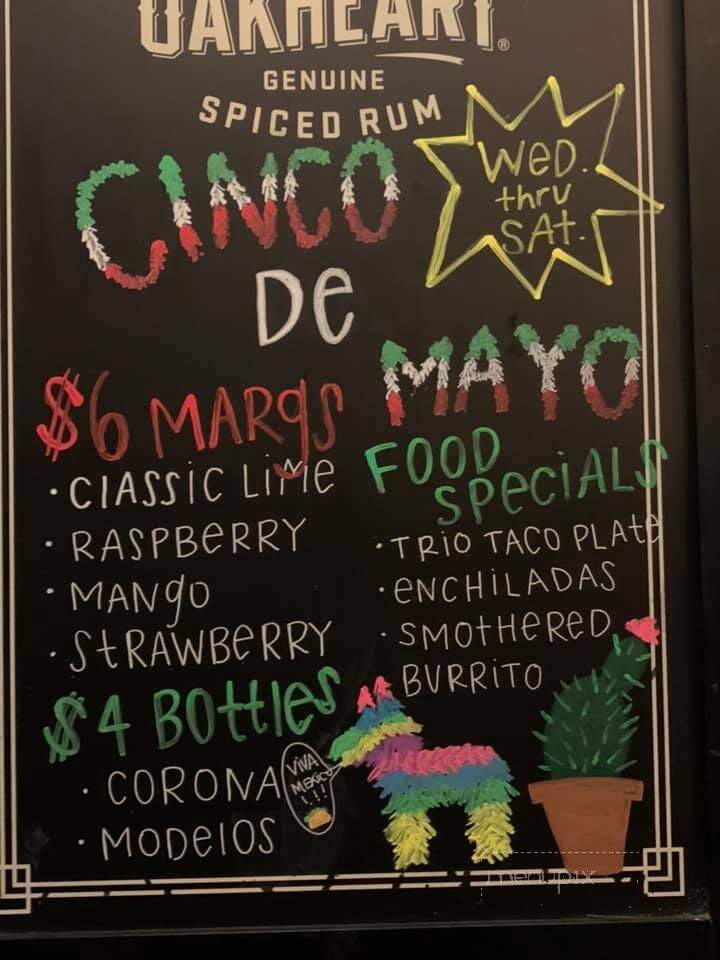 OAKHEART®
GENUINE
SPICED RUM
WED.
thru
SAt.
CINCO
De
MAYO
$6 MARgS
· ClASSiC LiMe
· RASPBeRRY
· MANgO
· StRAWBeRRY
$4 BOttleS
· CORONA
· MODelOS
FOOD
SPeCiALS
· TRiO TACO PLAte
· eNCHiLADAS
· SMOtHeRED
BURRiTO
ViVA
MEXiCO
!!!
menupix